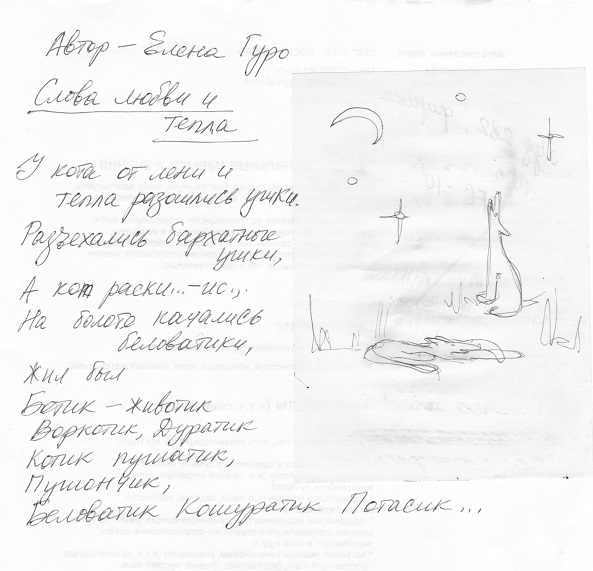 Автор – Елена Гуро
Слова любви и
тепла
У кота от лени и
тепла разошлись ушки.
Разъехались бархатные
ушки,
А кот раски...-ис..
На болоте качались
беловатики,
Жил был
Ботик – животик
Воркотик, Дуратик
Котик пушатик,
Пушончик,
Беловатик Кошуратик Потасик...